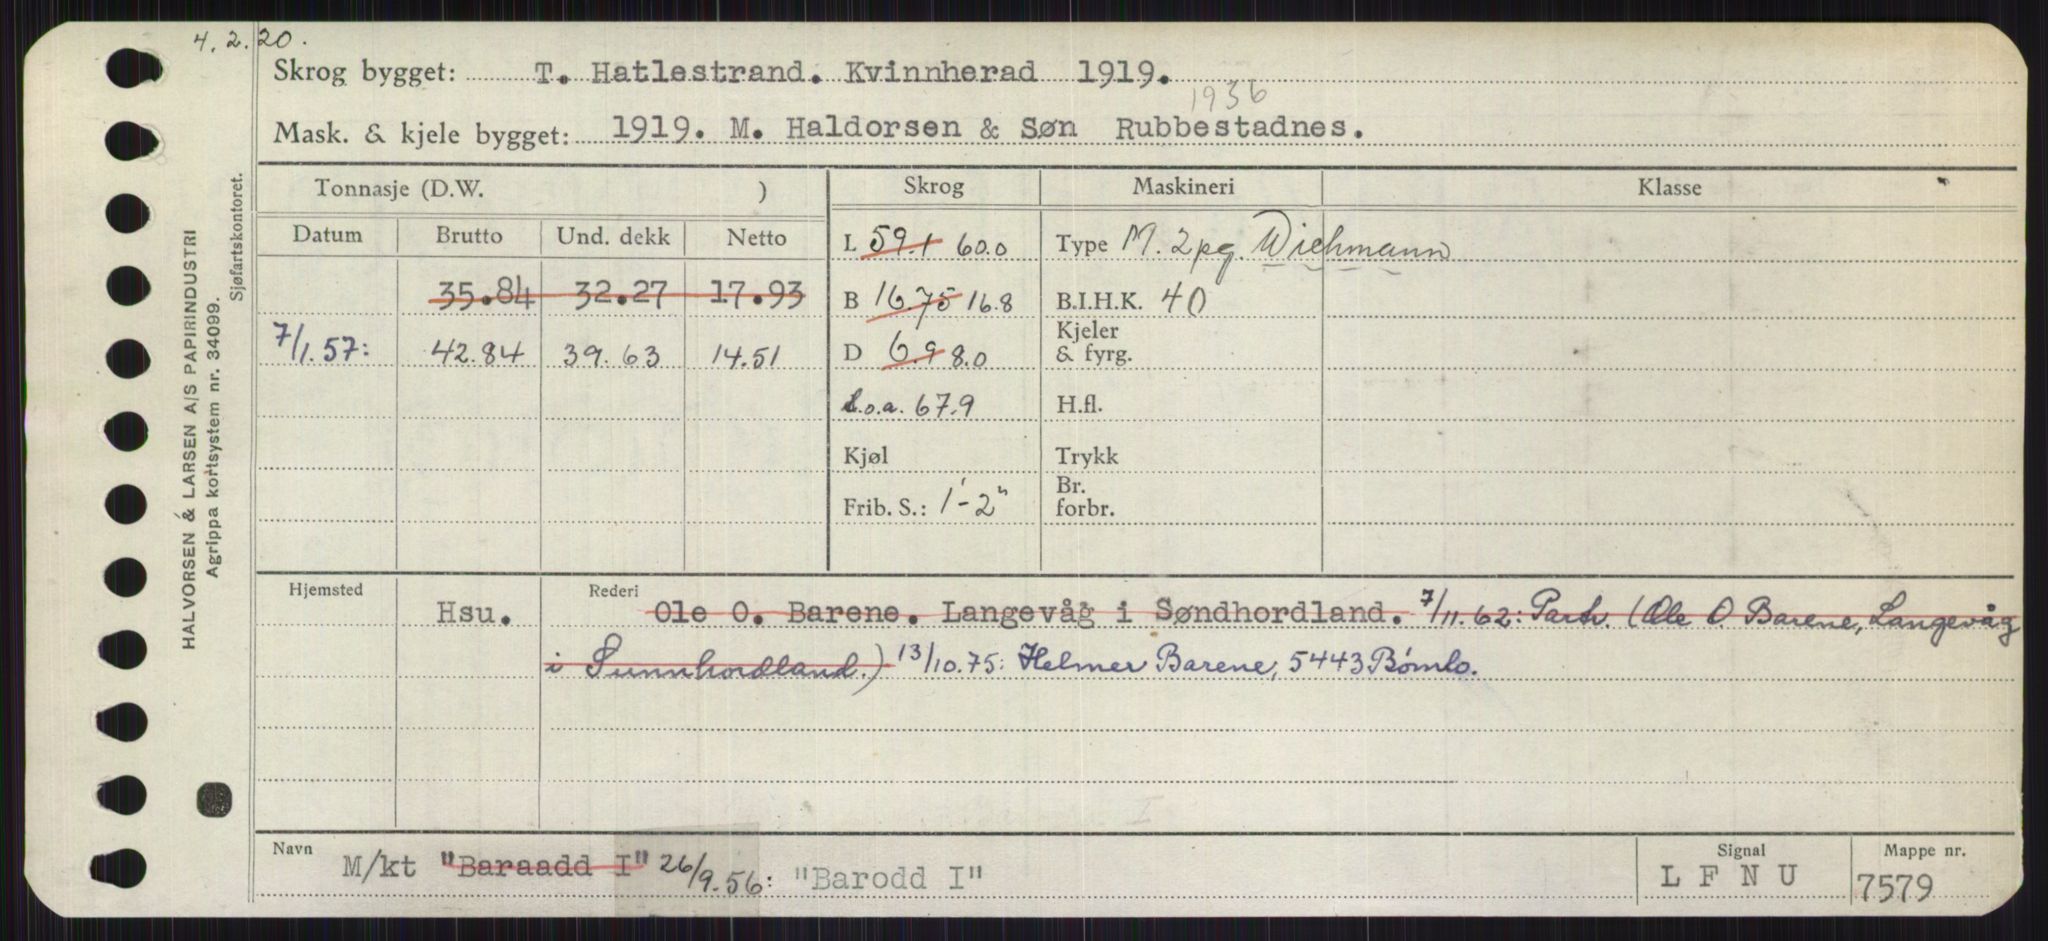 4.2.20.
Skrog bygget: T. Hatlestrand. Kvinnherad 1919.
1936
Mask. & kjele bygget: 1919. M. Haldorsen & Søn Rubbestadnes.
Tonnasje (D.W. ) Skrog Maskineri Klasse
Datum Brutto Und. dekk Netto
L 59.1 60.0 Type M. 2pg. Wichmann
35.84 32.27 17.93 B 16.75 16.8 B.I.H.K. 40
Kjeler
7/1.57: 42.84 39.63 14.51 D 6.9 8.0 & fyrg.
L.o.a. 67.9 H.fl.
Kjøl Trykk
Br.
Frib. S.: 1'-2" forbr.
Hjemsted Rederi
Hsu. Ole O. Barene. Langevåg i Søndhordland. 7/11.62: Partr. (Ole O. Barene, Langevåg
i Sunnhordland.) 13/10.75: Helmer Barene, 5443 Bömlo.
Navn Signal Mappe nr.
M/kt "Baraadd I" 26/9.56: "Barodd I" L F N U 7579
HALVORSEN & LARSEN A/S PAPIRINDUSTRI
Agrippa kortsystem nr. 34099.
Sjøfartskontoret.